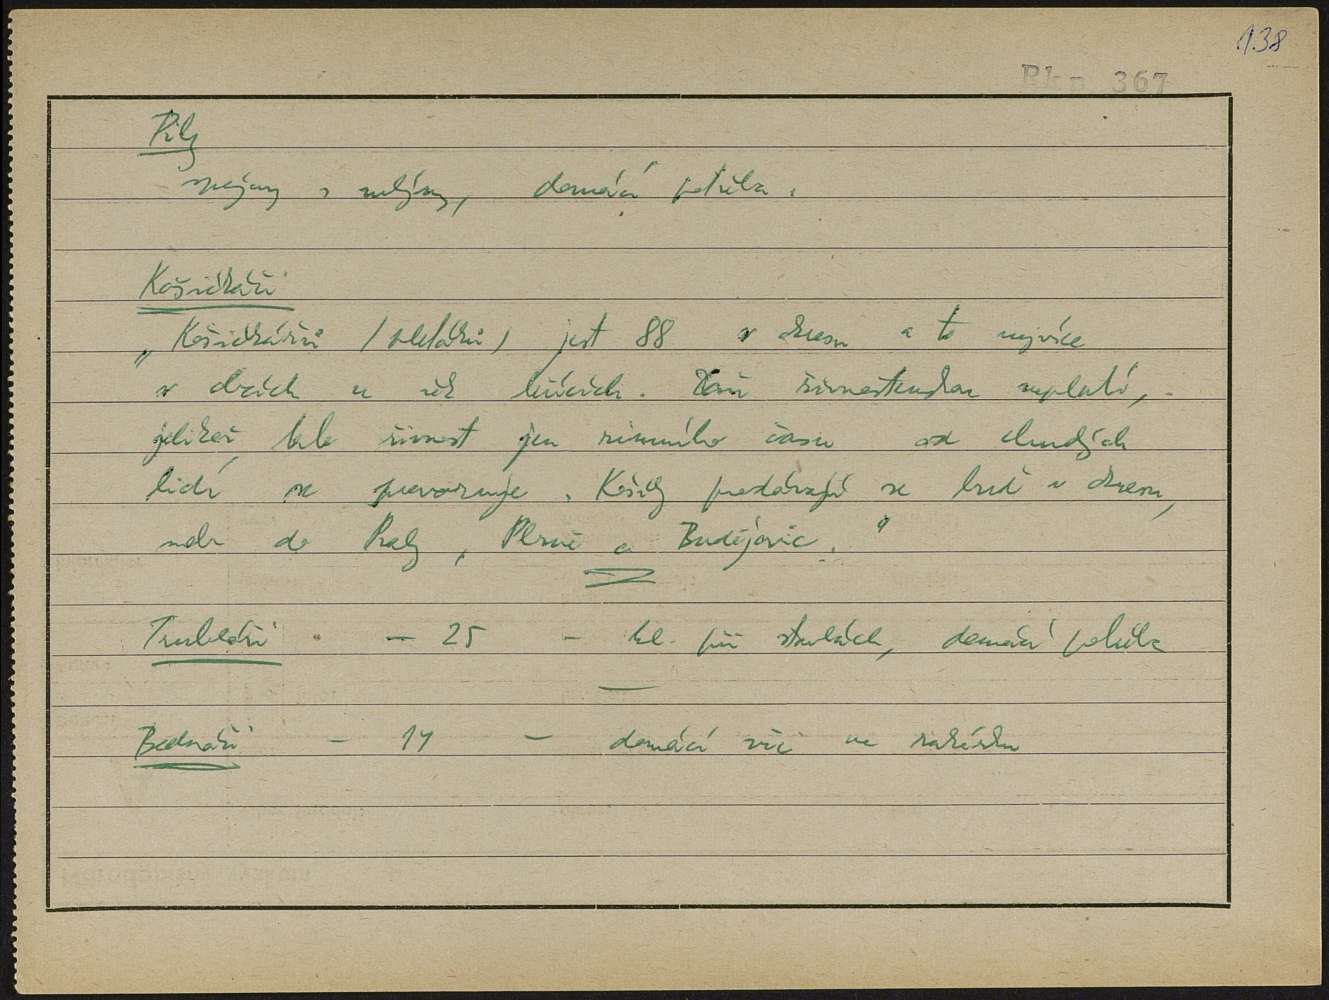 138
367
Pily
spojeny s mlýny, domácí potřeba.
Košíkáři
"Košíkářů / pletářů / jest 88 v okresu a to nejvíce
v obcích u řek ležících. Daň živnostenskou neplatí,
jelikož tato živnost jen zimního času od chudých
lidí se provozuje. Košíky prodávají se buď v okresu,
neb do Prahy, Plzně a Budějovic."
Truhláři - 25 - hl. při stavbách, domácí potřeba
Bednáři - 14 - domácí více na zakázku